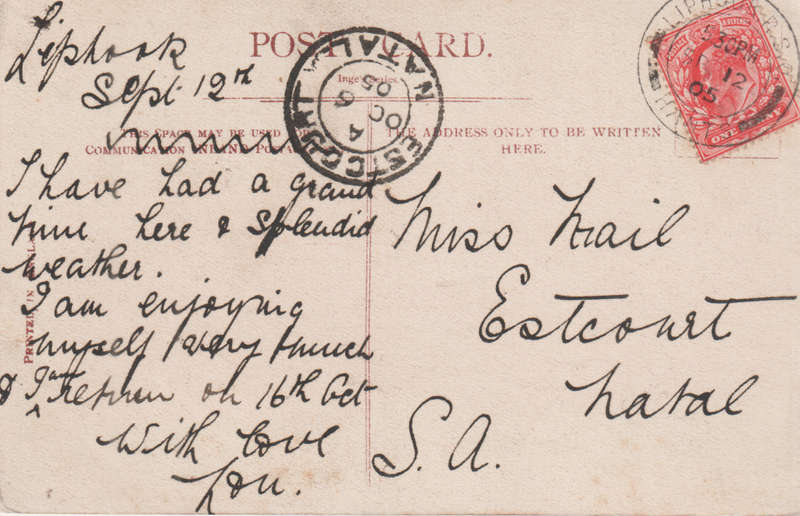 POST CARD.
Liphook
Sept 12th
THIS SPACE MAY BE USED FOR
COMMUNICATION INLAND POSTAGE
THE ADDRESS ONLY TO BE WRITTEN
HERE.
I have had a grand
time here & splendid
weather.
I am enjoying
myself very much
& I am return on 16th Oct
With love
Lou.
Miss
Estcourt
Natal
S.A.
PRINTED IN
ESTCOURT NATAL
A
OC 6
05
5.30PM
12
05
ONE PENNY